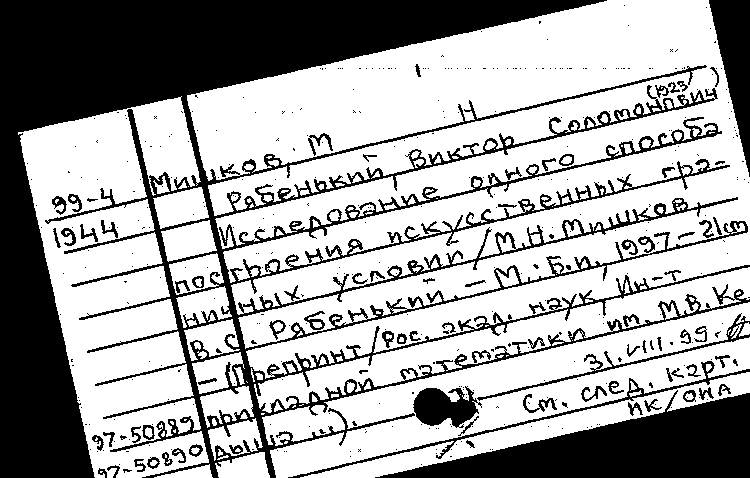 Мишков, М Н
99-4 Рябенький, Виктор Соломонович (1923)
1944 Исследование одного способа
построения искусственных гра-
ничных условий / М.Н. Мишков,
В.С. Рябенький. – М.: Б.и., 1997. – 21 см
– (Препринт / Рос. акад. наук, Ин-т
97-50889 прикладной математики им. М.В. Ке
97-50890 дыша ...).
31.VIII.99.
См. след. карт.
ПК/ОНА